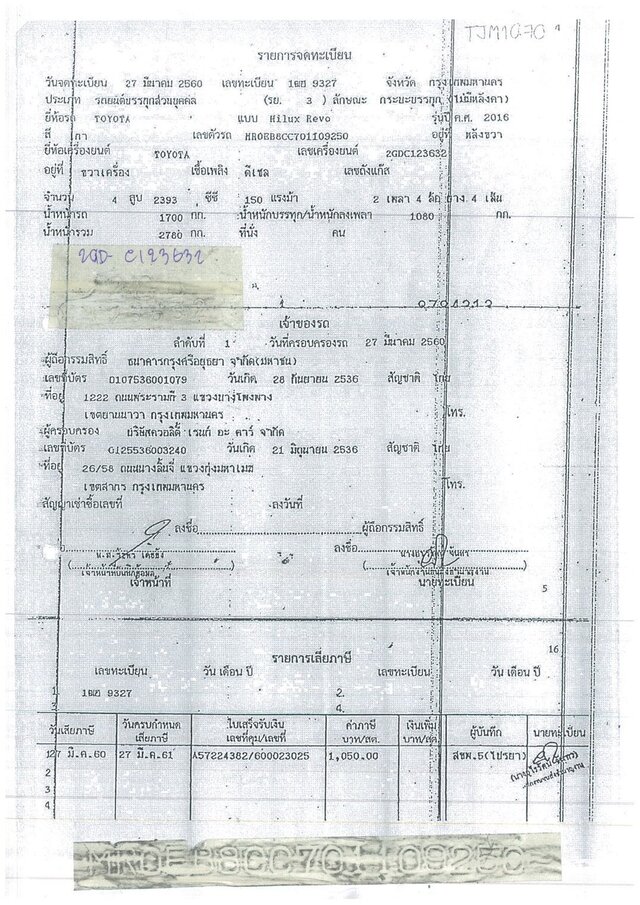 TJM1070
รายการจดทะเบียน
วันจดทะเบียน 27 มีนาคม 2560 เลขทะเบียน 9327 จังหวัด กรุงเทพมหานคร
ประเภท รถยนต์บรรทุกส่วนบุคคล (รย. 3 ) ลักษณะ กระบะบรรทุก (ไม่มีหลังคา)
ยี่ห้อรถ TOYOTA แบบ Hilux Revo รุ่นปี ค.ศ. 2016
สี เทา เลขตัวรถ MR0EB8CC701109250 อยู่ที่ หลังขวา
ยี่ห้อเครื่องยนต์ TOYOTA เลขเครื่องยนต์ 2GDC123632
อยู่ที่ ขวาเครื่อง เชื้อเพลิง ดีเซล เลขถังแก๊ส
จำนวน 4 สูบ 2393 ซีซี 150 แรงม้า 2 เพลา 4 ล้อ ยาง 4 เส้น
น้ำหนักรถ 1700 กก. น้ำหนักบรรทุก/น้ำหนักลงเพลา 1080 กก.
น้ำหนักรวม 2780 กก. ที่นั่ง คน
2GD- C123632
เจ้าของรถ
ลำดับที่ 1 วันที่ครอบครองรถ 27 มีนาคม 2560
ผู้ถือกรรมสิทธิ์ ธนาคารกรุงศรีอยุธยา จำกัด(มหาชน)
เลขที่บัตร 0107536001079 วันเกิด 28 กันยายน 2536 สัญชาติ ไทย
ที่อยู่ 1222 ถนนพระรามที่ 3 แขวงบางโพงพาง
เขตยานนาวา กรุงเทพมหานคร โทร.
ผู้ครอบครอง บริษัทควอลิตี้ เรนท์ อะ คาร์ จำกัด
เลขที่บัตร 0125536003240 วันเกิด 21 มิถุนายน 2536 สัญชาติ ไทย
ที่อยู่ 26/58 ถนนนางลิ้นจี่ แขวงทุ่งมหาเมฆ
เขตสาทร กรุงเทพมหานคร โทร.
สัญญาเช่าซื้อเลขที่ ลงวันที่
ลงชื่อ ผู้ถือกรรมสิทธิ์
ลงชื่อ
เจ้าหน้าที่ นายทะเบียน
5
16
รายการเสียภาษี
เลขทะเบียน วัน เดือน ปี เลขทะเบียน วัน เดือน ปี
1. 9327 2.
3. 4.
วันเสียภาษี วันครบกำหนดเสียภาษี ใบเสร็จรับเงิน เลขที่คุม/เลขที่ ค่าภาษี บาท/สต. เงินเพิ่ม บาท/สต. ผู้บันทึก นายทะเบียน
1 27 มี.ค.60 27 มี.ค.61 A57224382/600023025 1,050.00 สขพ.5(ไปรยา)
2
3
4
MR0EB8CC701109250